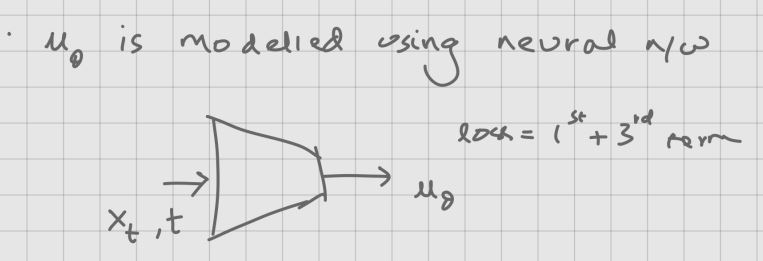 · μ_θ is modelled using neural n/w
loss = 1st + 3rd term
x_t, t
μ_θ